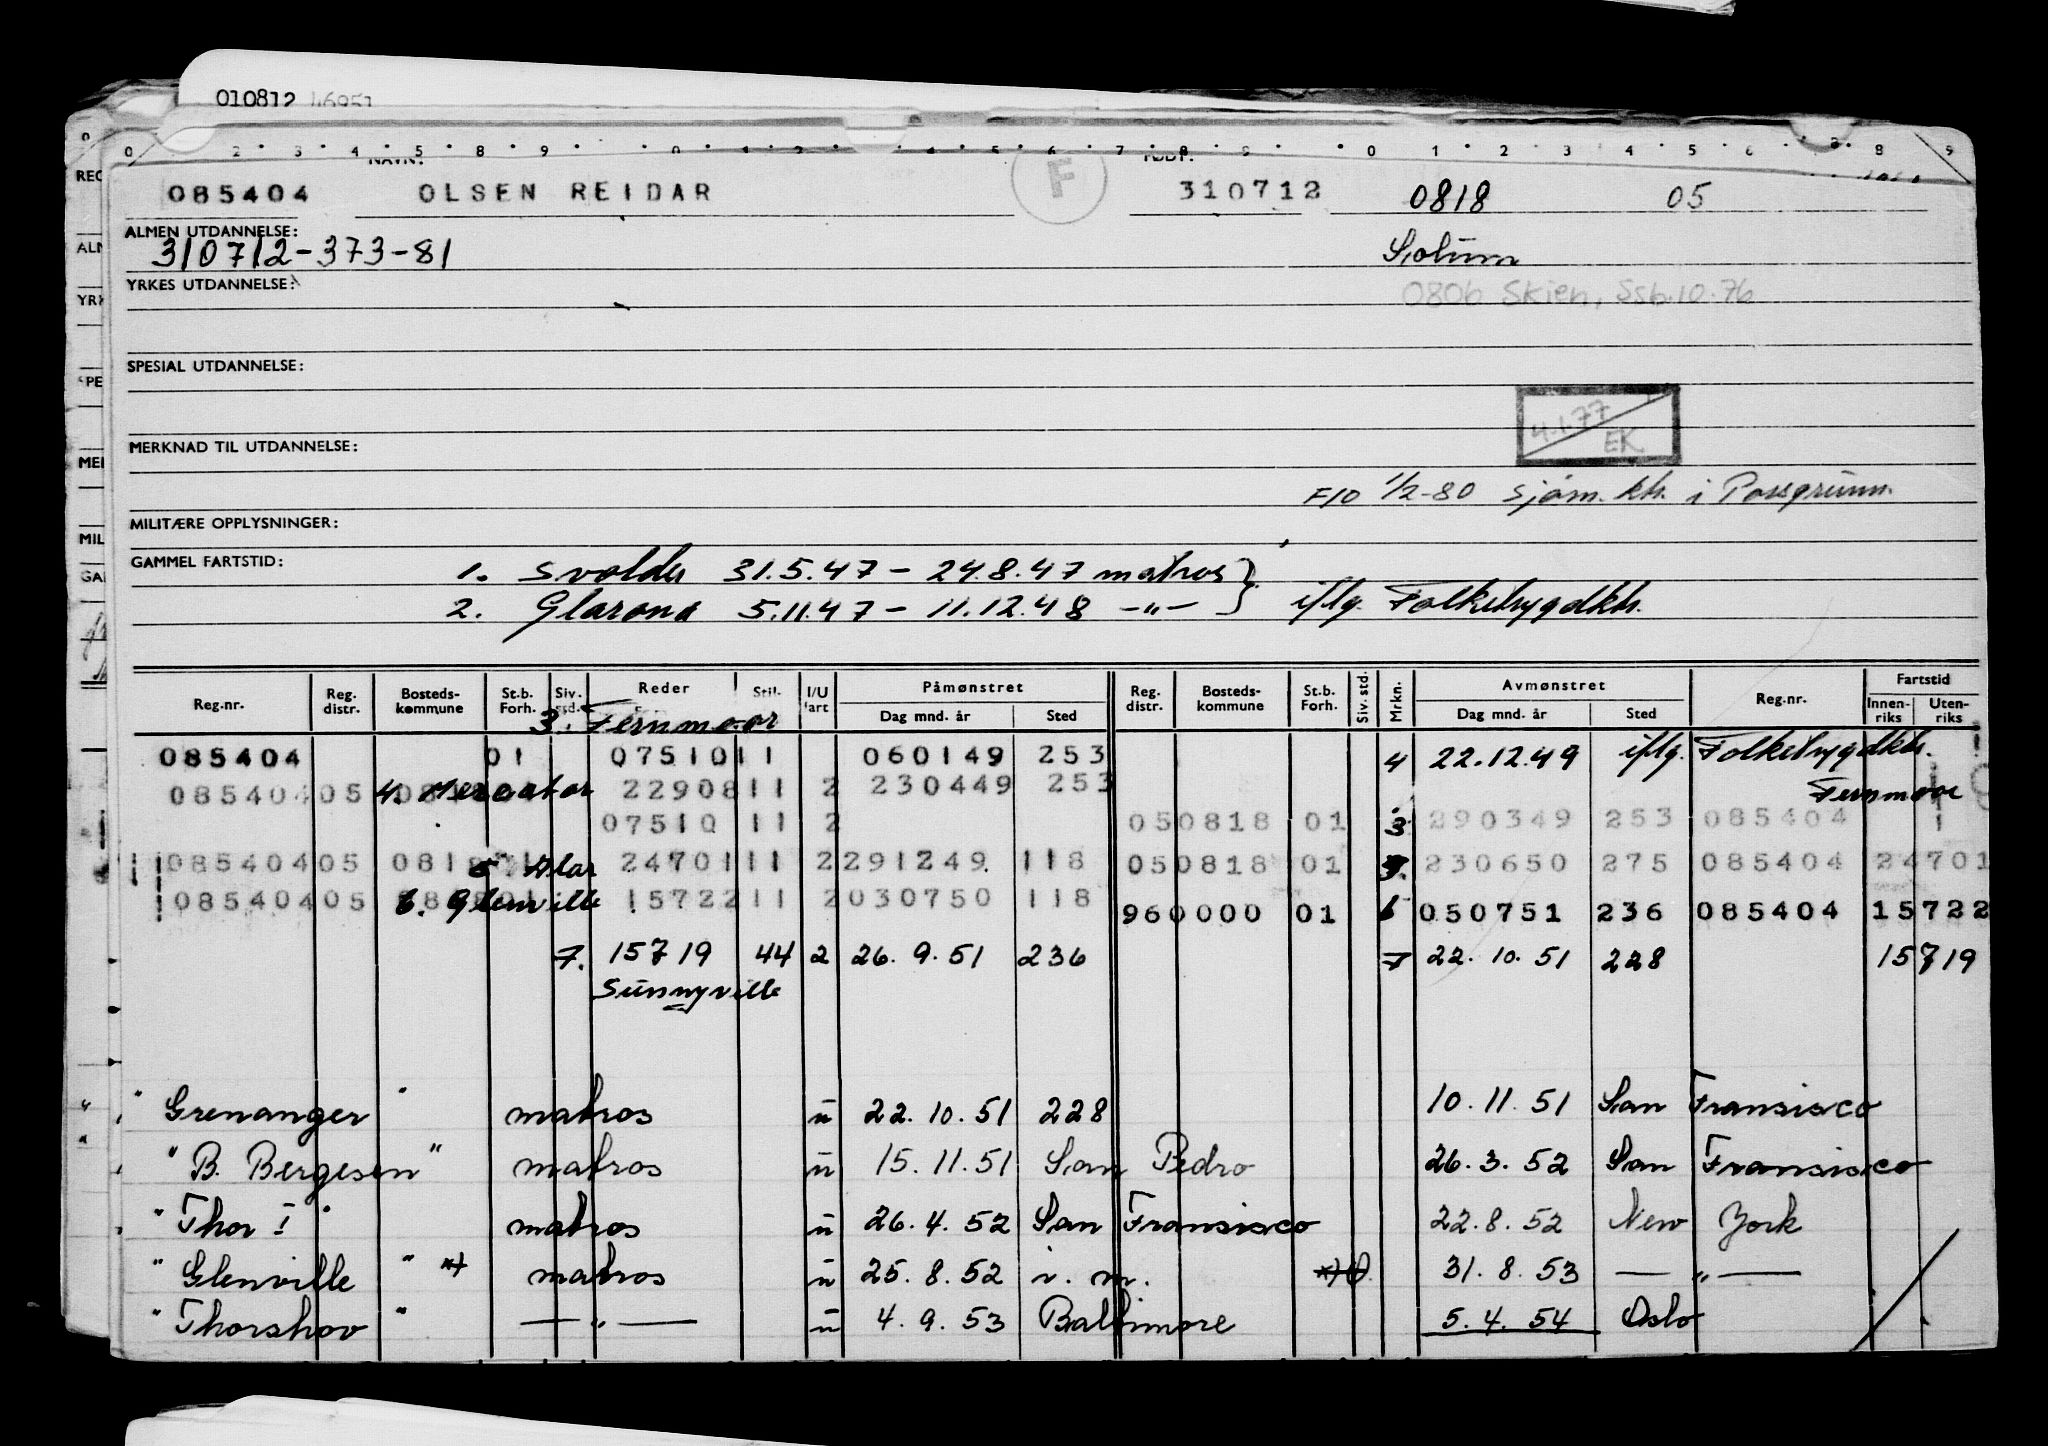 010812 46951
0 2 3 4 5 8 9 0 1 2 4 5 6 7 8 9 0 1 2 3 4 5 6 8 9
NAVN: FØDT:
085404 OLSEN REIDAR F 310712 0818 05
ALMEN UTDANNELSE:
310712-373-81 Solum
YRKES UTDANNELSE: 0806 Skien, Ssb.10.76
SPESIAL UTDANNELSE:
4.1.77 EK
MERKNAD TIL UTDANNELSE:
F10 1/2-80 Sjøm. kh. i Porsgrunn.
MILITÆRE OPPLYSNINGER:
GAMMEL FARTSTID:
1. Svolder 31.5.47 - 24.8.47 matros }
2. Glarona 5.11.47 - 11.12.48 -"- } iflg. Folketrygdkh.
Reg.nr. Reg. distr. Bosteds- kommune St.b. Forh. Siv. std. Reder Stil. I/U fart Påmønstret Dag mnd. år Sted Reg. distr. Bosteds- kommune St.b. Forh. Siv. std. Mrkn. Avmønstret Dag mnd. år Sted Reg.nr. Fartstid Innen- riks Uten- riks
3. Fernmoor
085404 01 07510 11 060149 253 4 22.12.49 iflg. Folketrygdkh.
085404 05 4. Mercator 22908 11 2 230449 253 Fernmoor
07510 11 2 050818 01 3 290349 253 085404
085404 05 0818 5 Alar 24701 11 2 291249 118 050818 01 230650 275 085404 24701
085404 05 6. Glenville 15722 11 2 030750 118 960000 01 6 050751 236 085404 15722
7. 15719 44 2 26.9.51 236 7 22.10.51 228 15719
Sunnyville
" Grenanger " matros u 22.10.51 228 10.11.51 San Fransisco
" B. Bergesen " matros u 15.11.51 San Pedro 26.3.52 San Fransisco
" Thor I " matros u 26.4.52 San Fransisco 22.8.52 New York
" Glenville " *) matros u 25.8.52 i. m. *) 31.8.53 — " —
" Thorshov " — " — u 4.9.53 Baltimore 5.4.54 Oslo